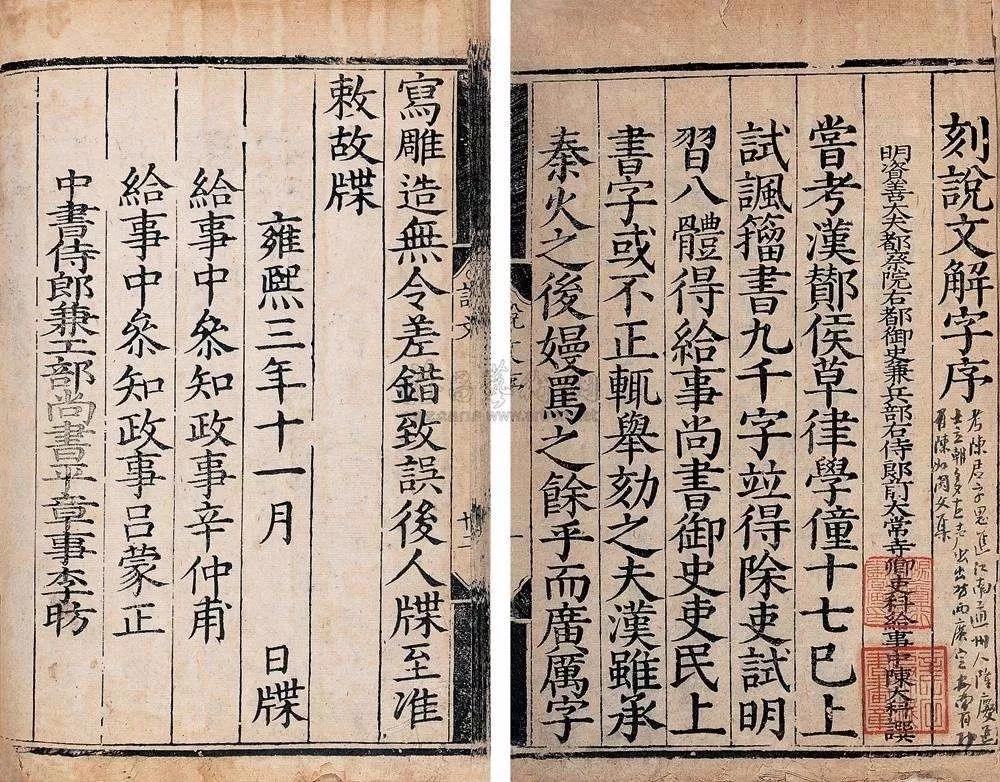 刻說文解字序
明資善大夫都察院右都御史兼兵部右侍郎前太常寺卿吏科給事中陳大科譔
嘗考漢酇侯草律學僮十七巳上
試諷籀書九千字竝得除吏試明
習八體得給事尚書御史吏民上
書字或不正輒舉劾之夫漢雖承
秦火之後嫚罵之餘乎而廣厲字
說文
寫雕造無令差錯致誤後人牒至准
敕故牒
雍熙三年十一月 日牒
給事中叅知政事辛仲甫
給事中叅知政事呂蒙正
中書侍郎兼工部尚書平章事李昉